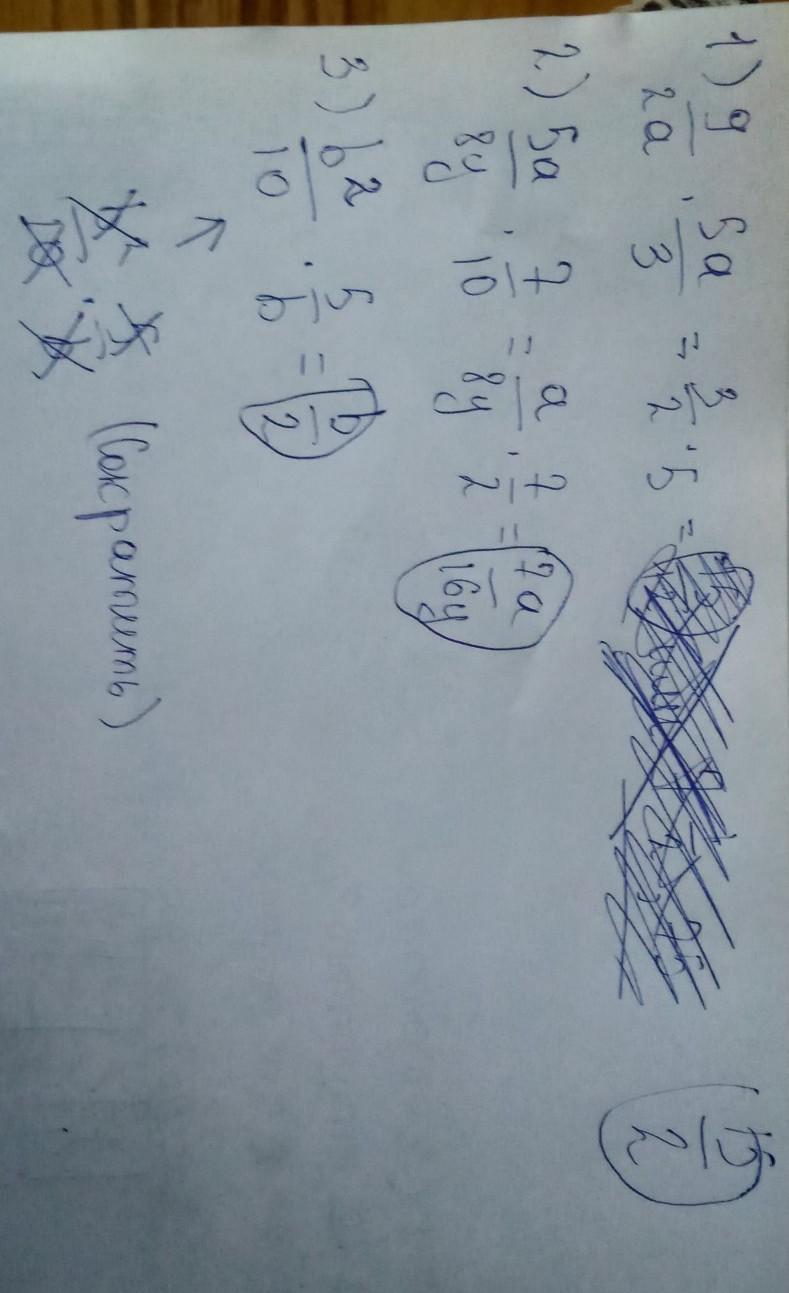 1) 9/2a · 5a/3 = 3/2 · 5 = 15/2
2) 5a/8y · 7/10 = a/8y · 7/2 = 7a/16y
3) b²/10 · 5/b = b/2
(Сократить)